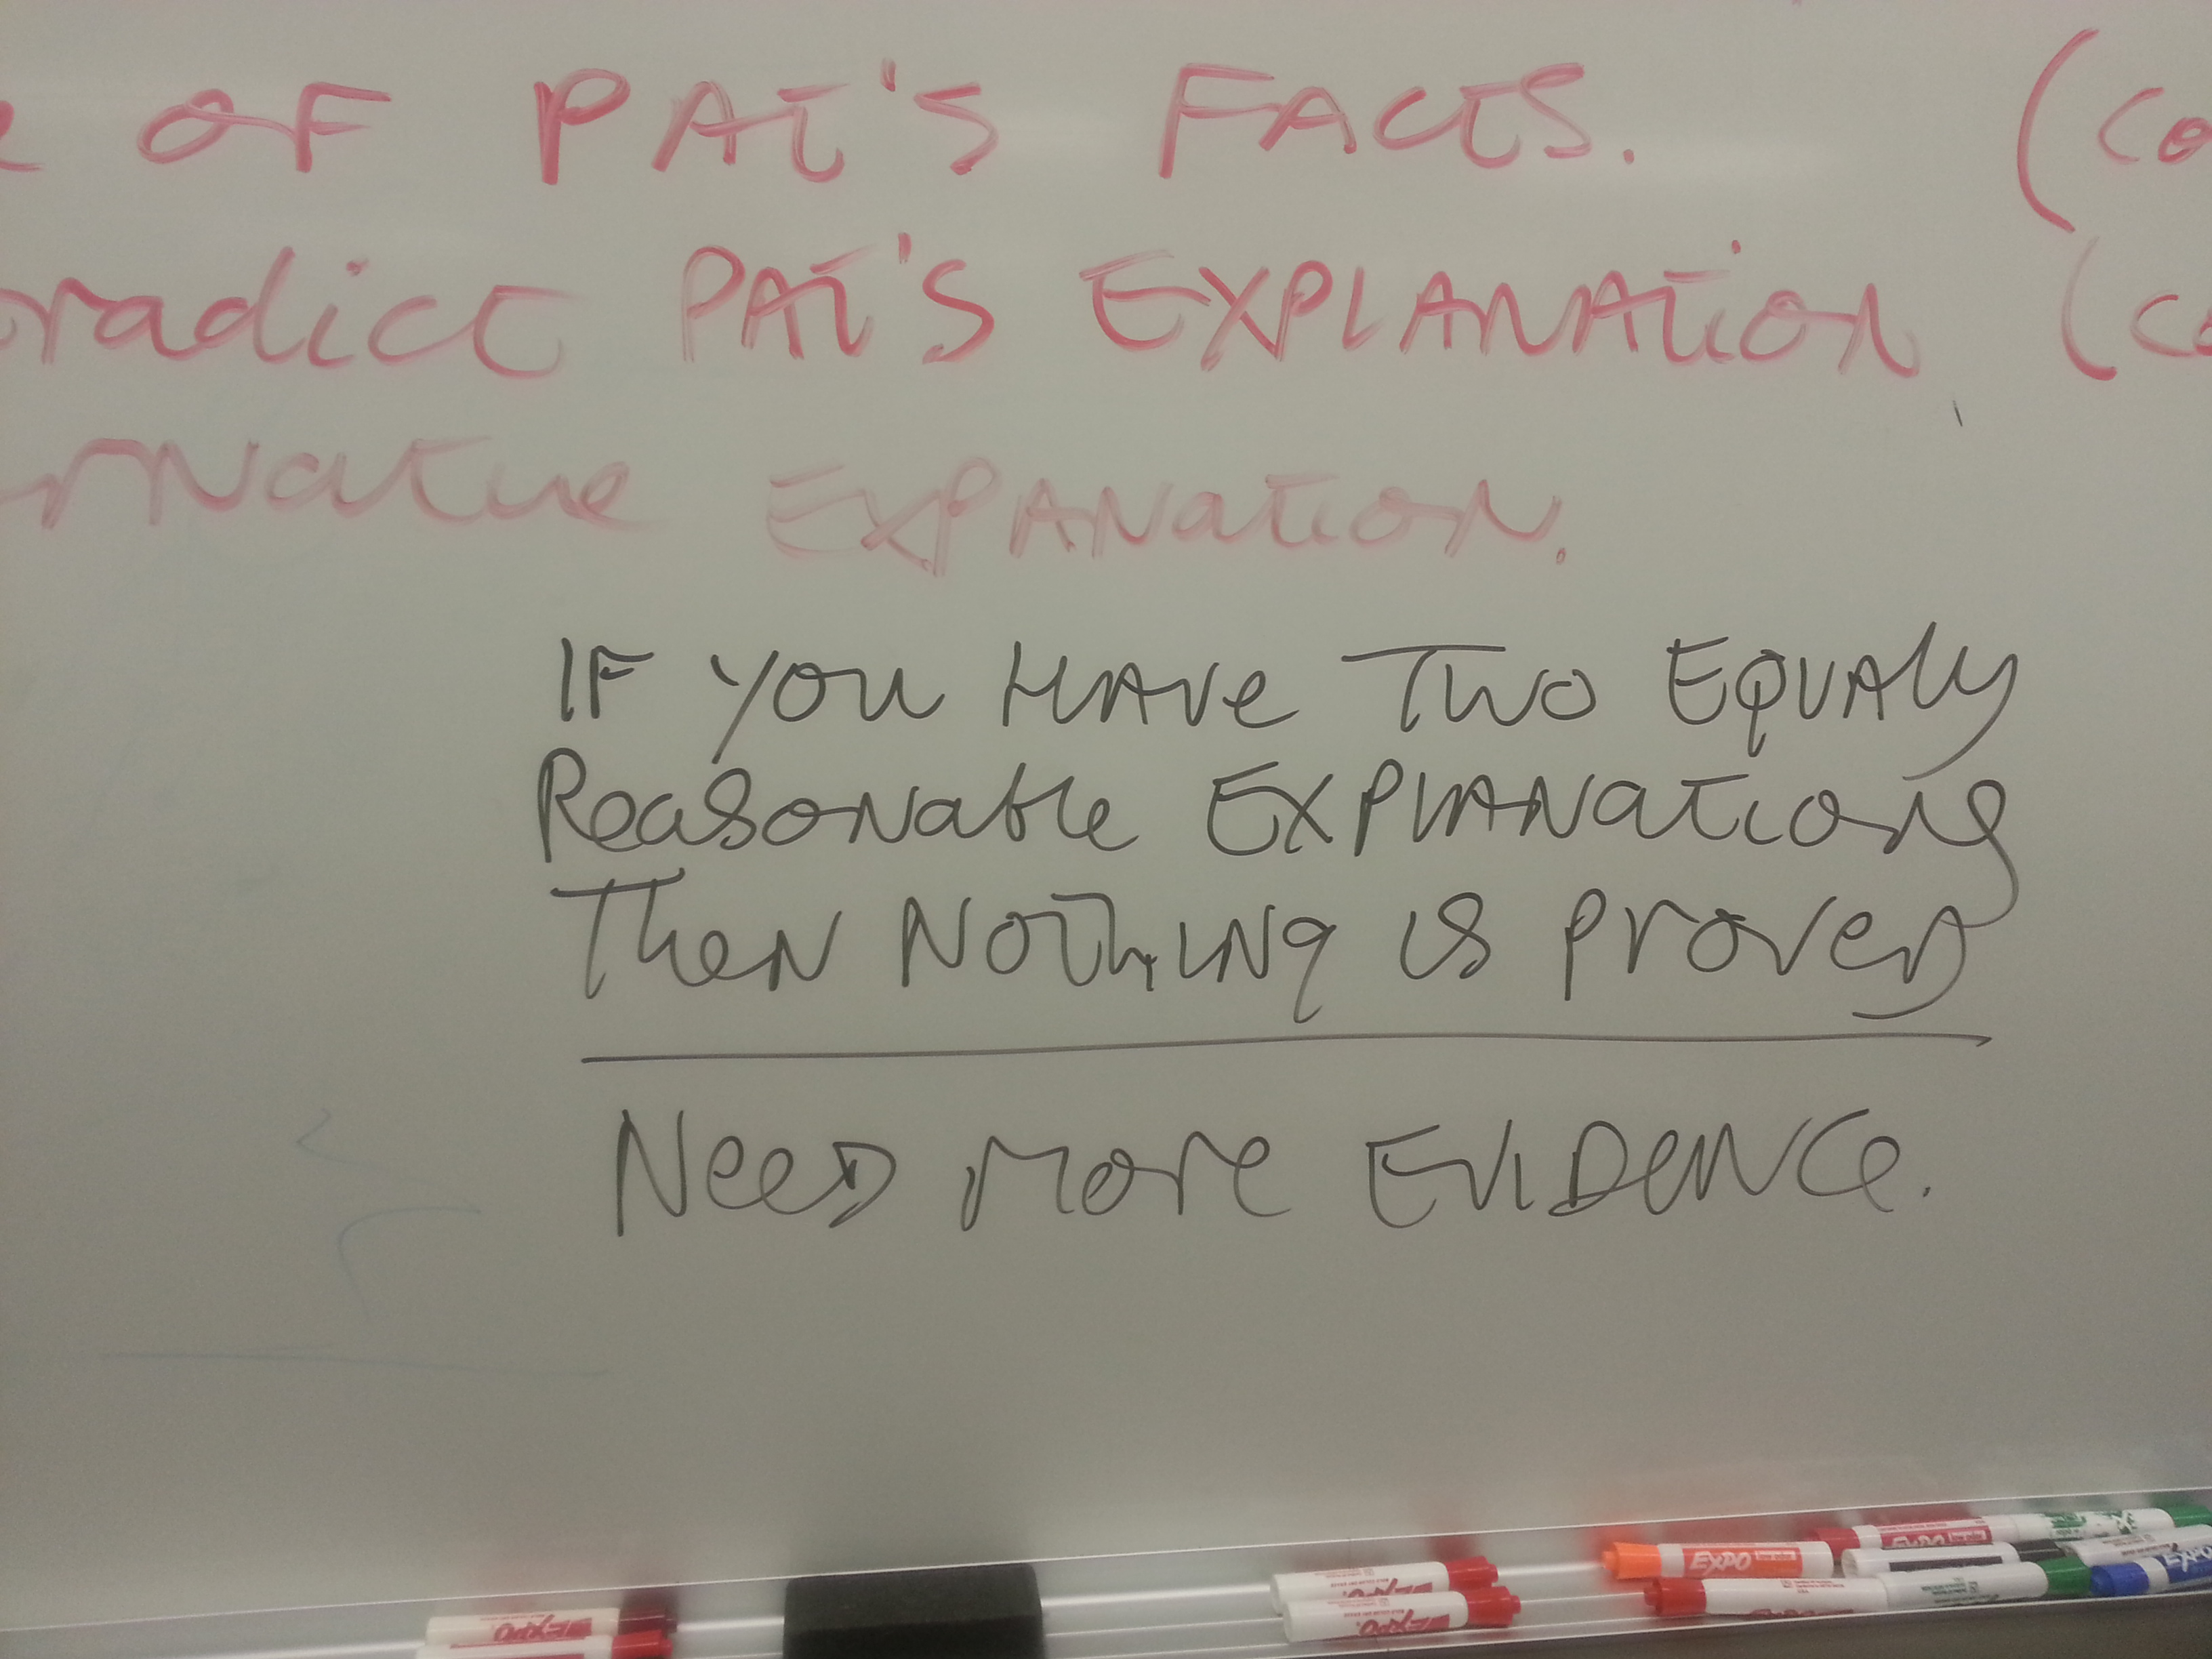 OF PAT'S FACTS. (CO
radict PAT'S EXPLANATION. (CO
rNative EXPANATION.
IF YOU HAVE TWO EQUALY
Reasonable EXPLANATIONS
Then NOThING is PROVED
Need more EVIDENCE.
EXPO
EXPO
EXPO
EXPO
EXPO
EXPO